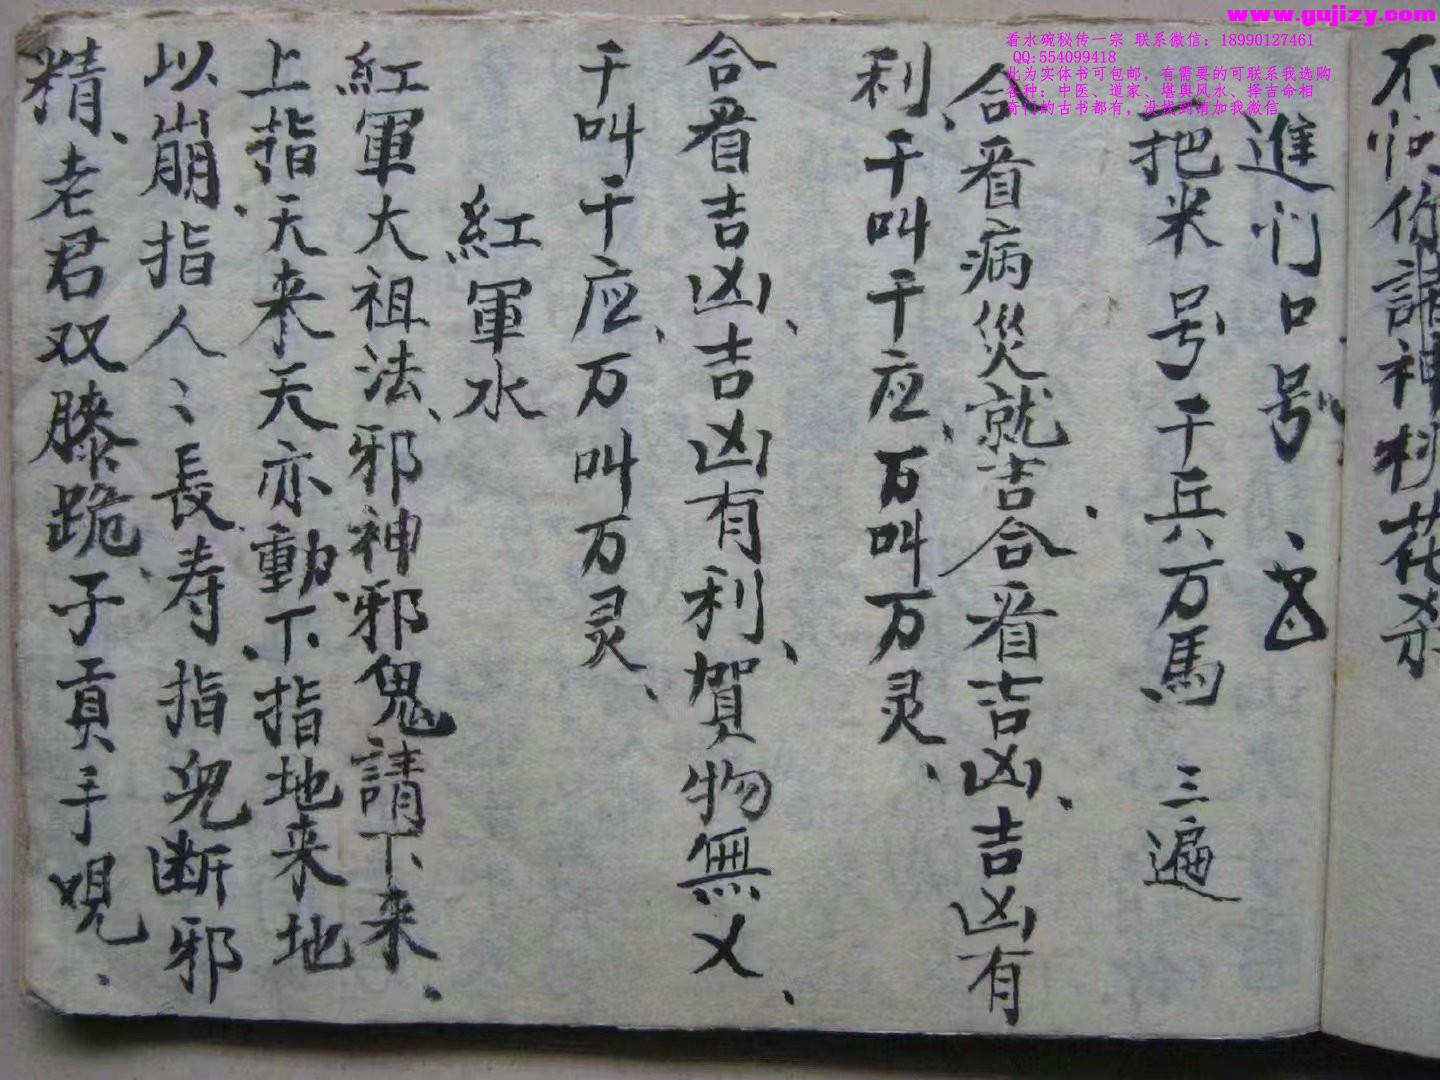 www.gujizy.com
看水碗秘传一宗 联系微信：18990127461
QQ:554099418
此为实体书可包邮，有需要的可联系我选购
各种：中医、道家、堪舆风水、择吉命相
奇门的古书都有，没找到请加我微信
不 你請神 花杀
進们口号、
把米号千兵万馬、三遍
合看病災就吉合看吉凶、吉凶有
利、千叫千应、万叫万灵、
合看吉凶、吉凶有利、賀物無乂、
千叫千应、万叫万灵、
紅軍水
紅軍大祖法、邪神邪鬼請下来、
上指天来天亦動、下指地来地
以崩、指人人長寿、指鬼断邪
精、老君双膝跪、子貢手 、